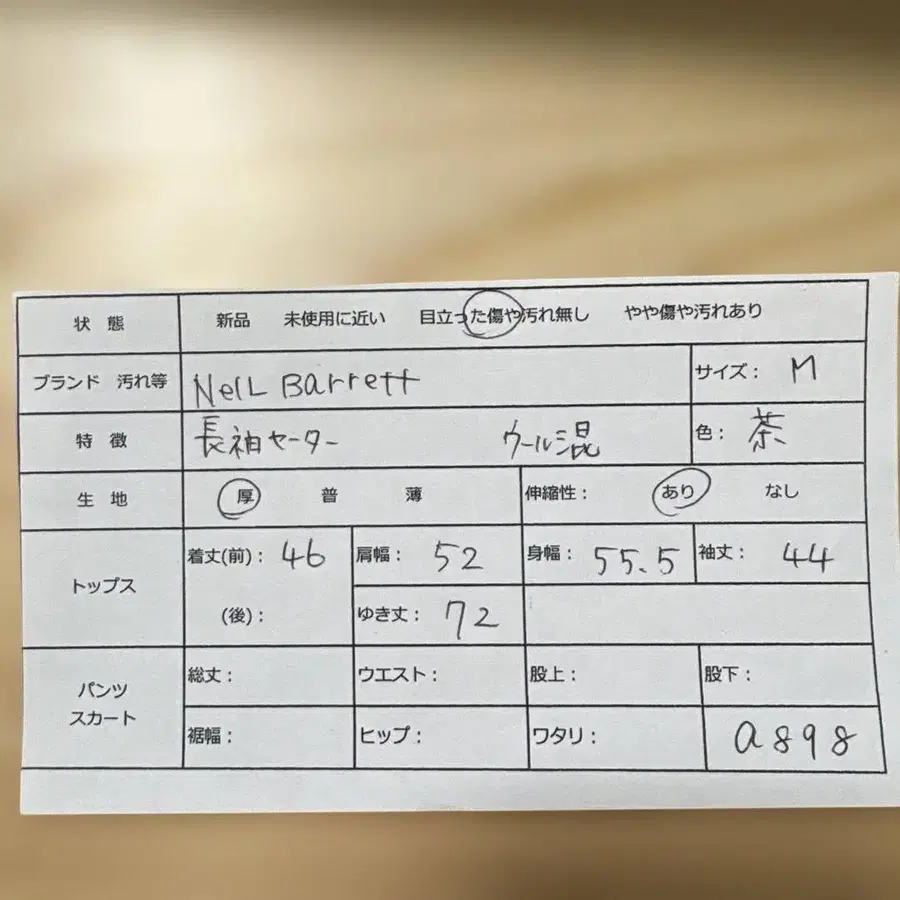 状 態 新品 未使用に近い 目立った傷や汚れ無し やや傷や汚れあり
ブランド 汚れ等 Neil Barrett サイズ： M
特 徴 長袖セーター ウール混 色： 茶
生 地 厚 普 薄 伸縮性： あり なし
トップス 着丈(前)： 46 肩幅： 52 身幅： 55.5 袖丈： 44
(後)： ゆき丈： 72
パンツ スカート 総丈： ウエスト： 股上： 股下：
裾幅： ヒップ： ワタリ： a898